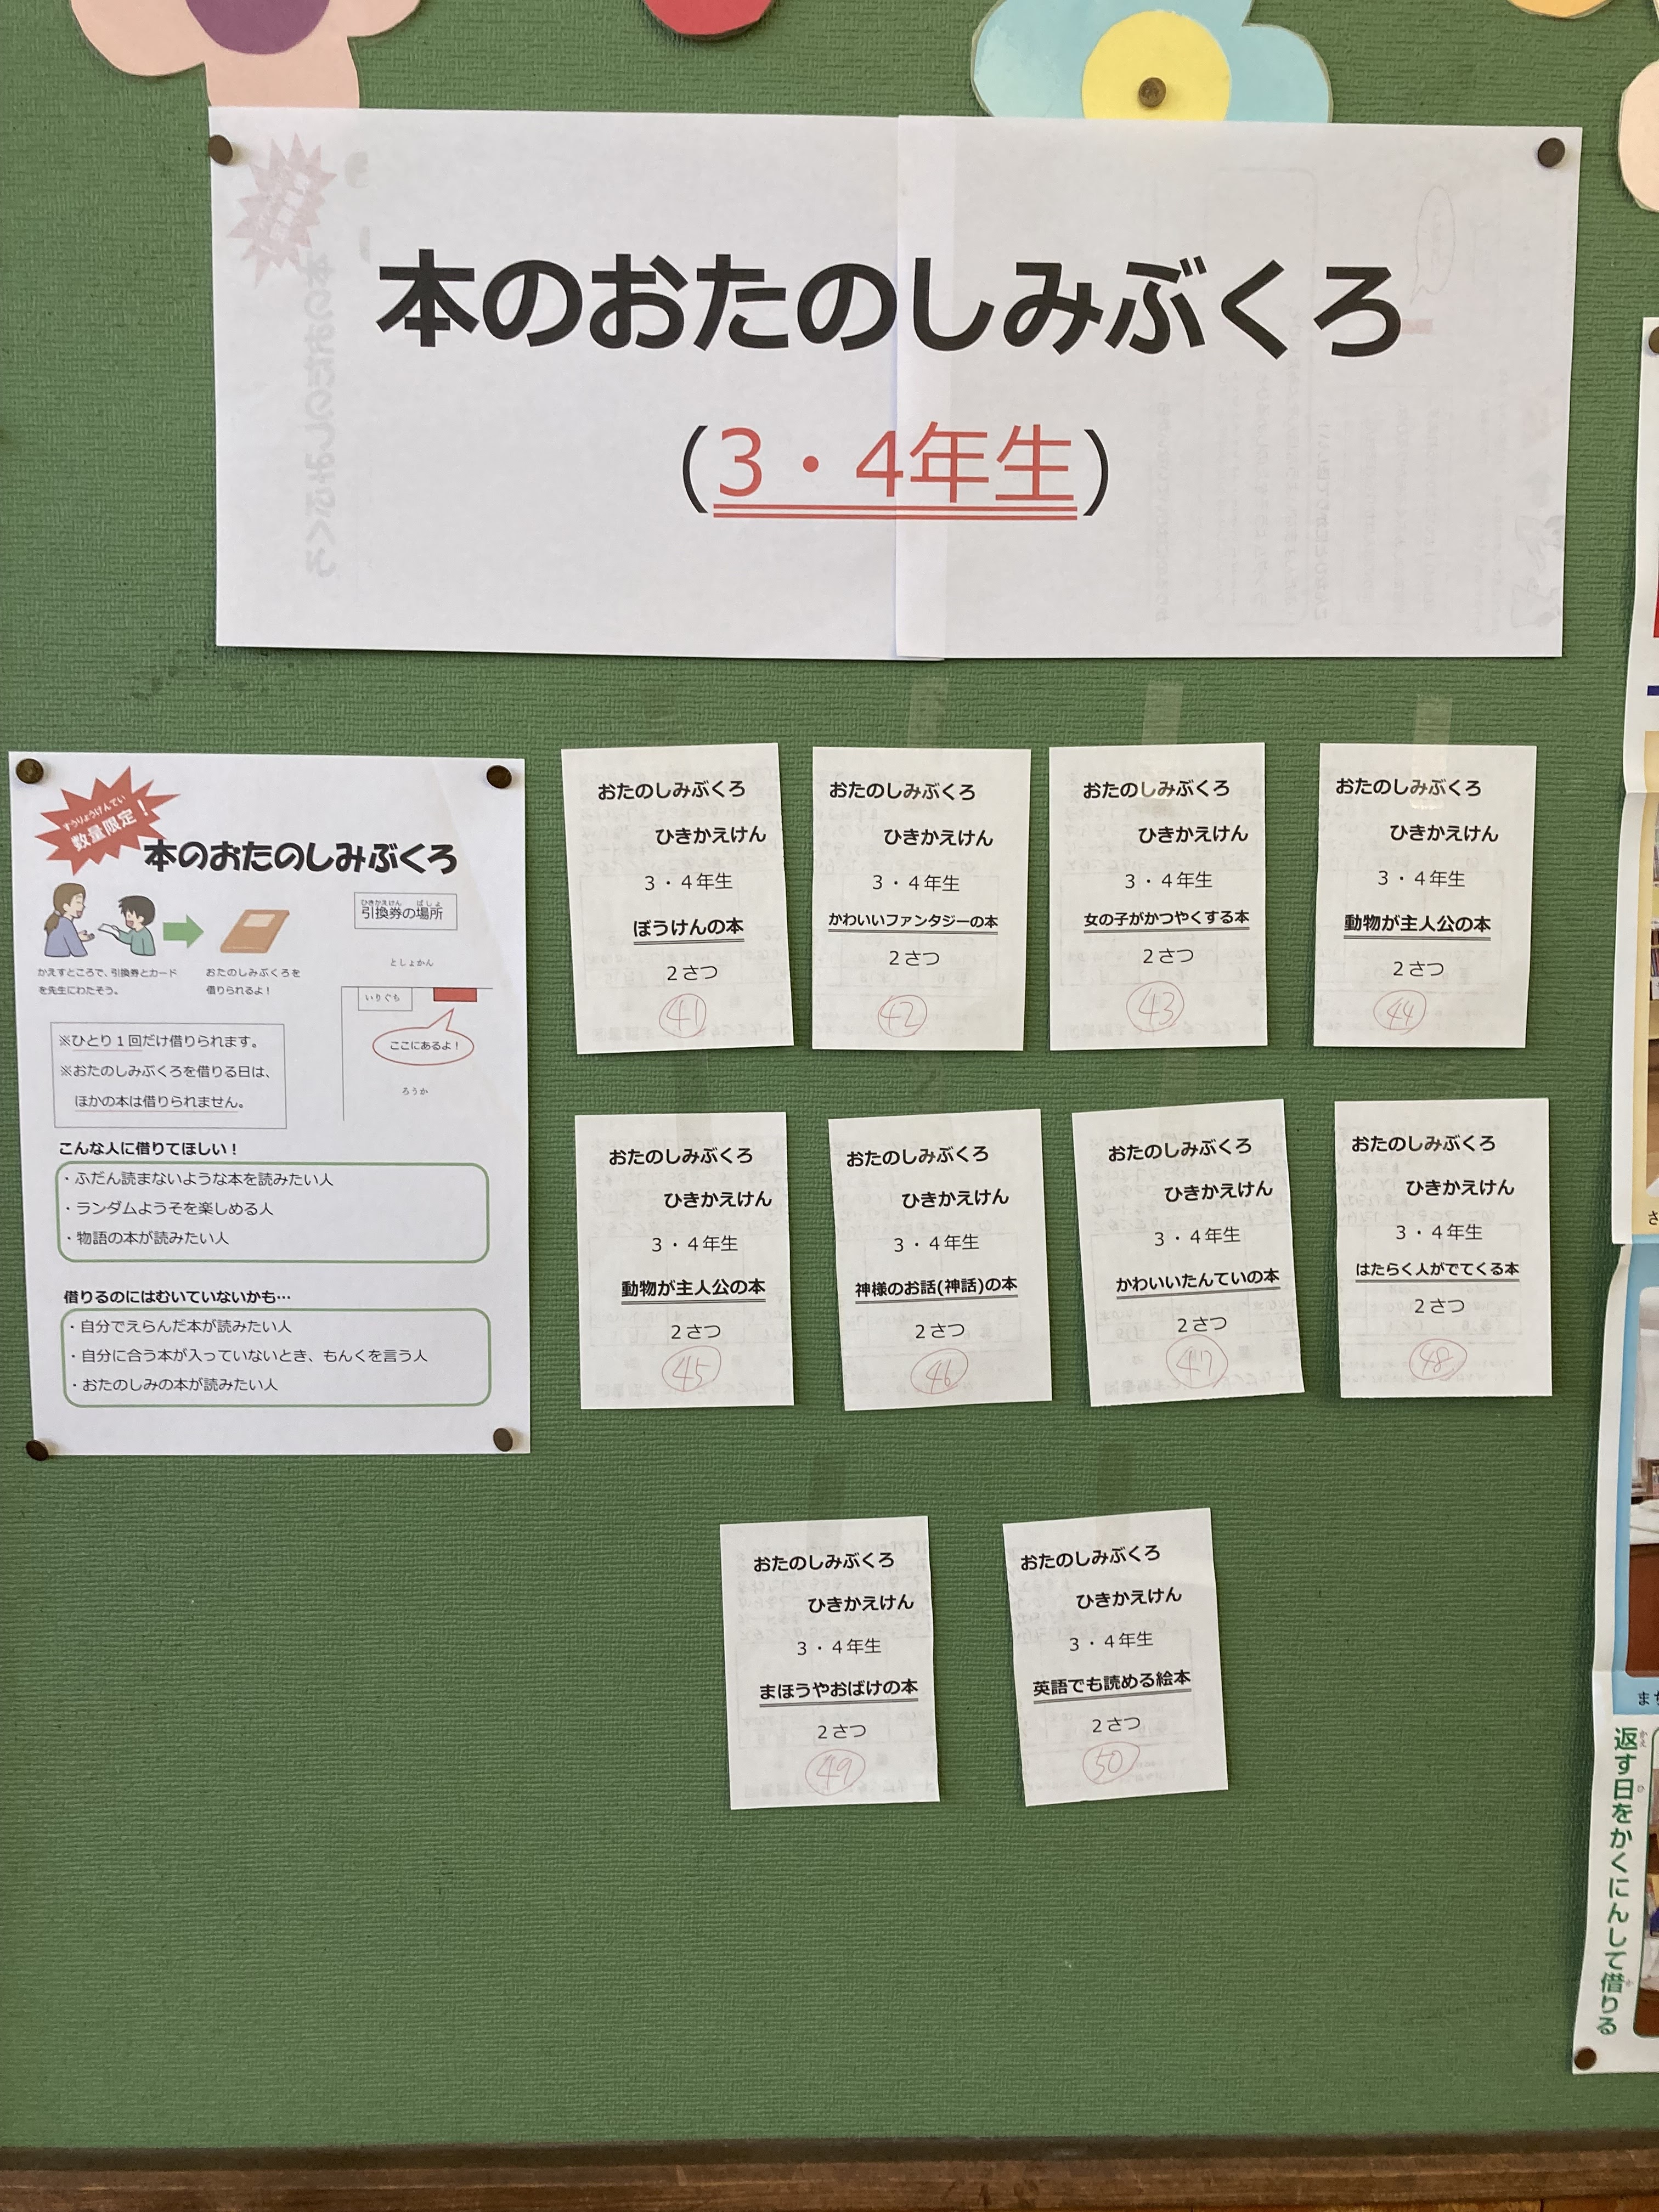 本のおたのしみぶくろ
(3・4年生)
すうりょうげんてい
数量限定！
本のおたのしみぶくろ
かえすところで、引換券とカード
を先生にわたそう。
おたのしみぶくろを
借りられるよ！
ひきかえけん ばしょ
引換券の場所
としょかん
いりぐち
ここにあるよ！
ろうか
※ひとり１回だけ借りられます。
※おたのしみぶくろを借りる日は、
ほかの本は借りられません。
こんな人に借りてほしい！
・ふだん読まないような本を読みたい人
・ランダムようそを楽しめる人
・物語の本が読みたい人
借りるのにはむいていないかも…
・自分でえらんだ本が読みたい人
・自分に合う本が入っていないとき、もんくを言う人
・おたのしみの本が読みたい人
おたのしみぶくろ
ひきかえけん
３・４年生
ぼうけんの本
２さつ
41
おたのしみぶくろ
ひきかえけん
３・４年生
かわいいファンタジーの本
２さつ
42
おたのしみぶくろ
ひきかえけん
３・４年生
女の子がかつやくする本
２さつ
43
おたのしみぶくろ
ひきかえけん
３・４年生
動物が主人公の本
２さつ
44
おたのしみぶくろ
ひきかえけん
３・４年生
動物が主人公の本
２さつ
45
おたのしみぶくろ
ひきかえけん
３・４年生
神様のお話(神話)の本
２さつ
46
おたのしみぶくろ
ひきかえけん
３・４年生
かわいいたんていの本
２さつ
47
おたのしみぶくろ
ひきかえけん
３・４年生
はたらく人がでてくる本
２さつ
48
おたのしみぶくろ
ひきかえけん
３・４年生
まほうやおばけの本
２さつ
49
おたのしみぶくろ
ひきかえけん
３・４年生
英語でも読める絵本
２さつ
50
返す日をかくにんして借りる